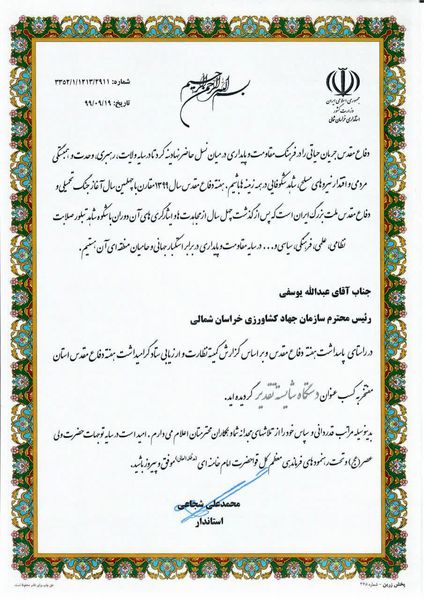 بسم الله الرحمن الرحیم
جمهوری اسلامی ایران
وزارت کشور
استانداری خراسان شمالی
شماره: ۳۳۵۲/۱/۱۲۱۳/۲۹۱۱
تاریخ: ۹۹/۰۹/۱۹
دفاع مقدس جریان حیاتی را در فرهنگ مقاومت و پایداری در میان نسل حاضر نهادینه کرد تا در سایه ولایت، رهبری، وحدت و همبستگی
مردمی و اقتدار نیروهای مسلح، شاهد شکوفایی در همه زمینه ها باشیم. هفته دفاع مقدس سال ۱۳۹۹ مقارن با چهلمین سال آغاز جنگ تحمیلی و
دفاع مقدس ملت بزرگ ایران است که پس از گذشت چهل سال از مجاهدت ها و ایثارگری های آن دوران با شکوه شاهد تبلور صلابت
نظامی، علمی، فرهنگی، سیاسی و... در سایه مقاومت و پایداری در برابر استکبار جهانی و حامیان منطقه ای آن هستیم.
جناب آقای عبدالله یوسفی
رئیس محترم سازمان جهاد کشاورزی خراسان شمالی
در راستای پاسداشت هفته دفاع مقدس و بر اساس گزارش کمیته نظارت و ارزیابی ستاد گرامیداشت هفته دفاع مقدس استان
مفتخر به کسب عنوان دستگاه شایسته تقدیر گردیده اید.
بدینوسیله مراتب قدردانی و سپاس خود را از تلاشهای مجدانه شما و همکاران محترمتان اعلام می دارم. امید است در سایه توجهات حضرت ولی
عصر (عج) و تحت رهنمودهای فرماندهی معظم کل قوا حضرت امام خامنه ای (مدظله العالی) موفق و پیروز باشید.
محمدعلی شجاعی
استاندار
پخش زرین - شماره ۲۴۵